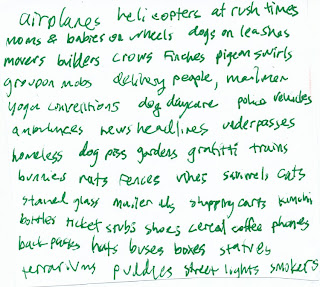 airplanes helicopters at rush times
moms & babies on wheels dogs on leashes
movers builders crows finches pigeon swirls
groupon mobs delivery people, mailman
yoga conventions dog daycare police vehicles
ambulances news headlines underpasses
homeless dog piss gardens graffiti trains
bunnies rats fences vines squirrels cats
stained glass mailer shopping carts
bottles ticket stubs shoes cereal coffee phones
backpacks hats buses boxes statues
terrariums puddles street lights smokers